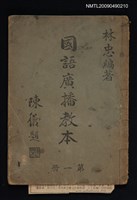 NMTL20090490210
林忠編著
國語廣播教本
陳儀題
第一冊